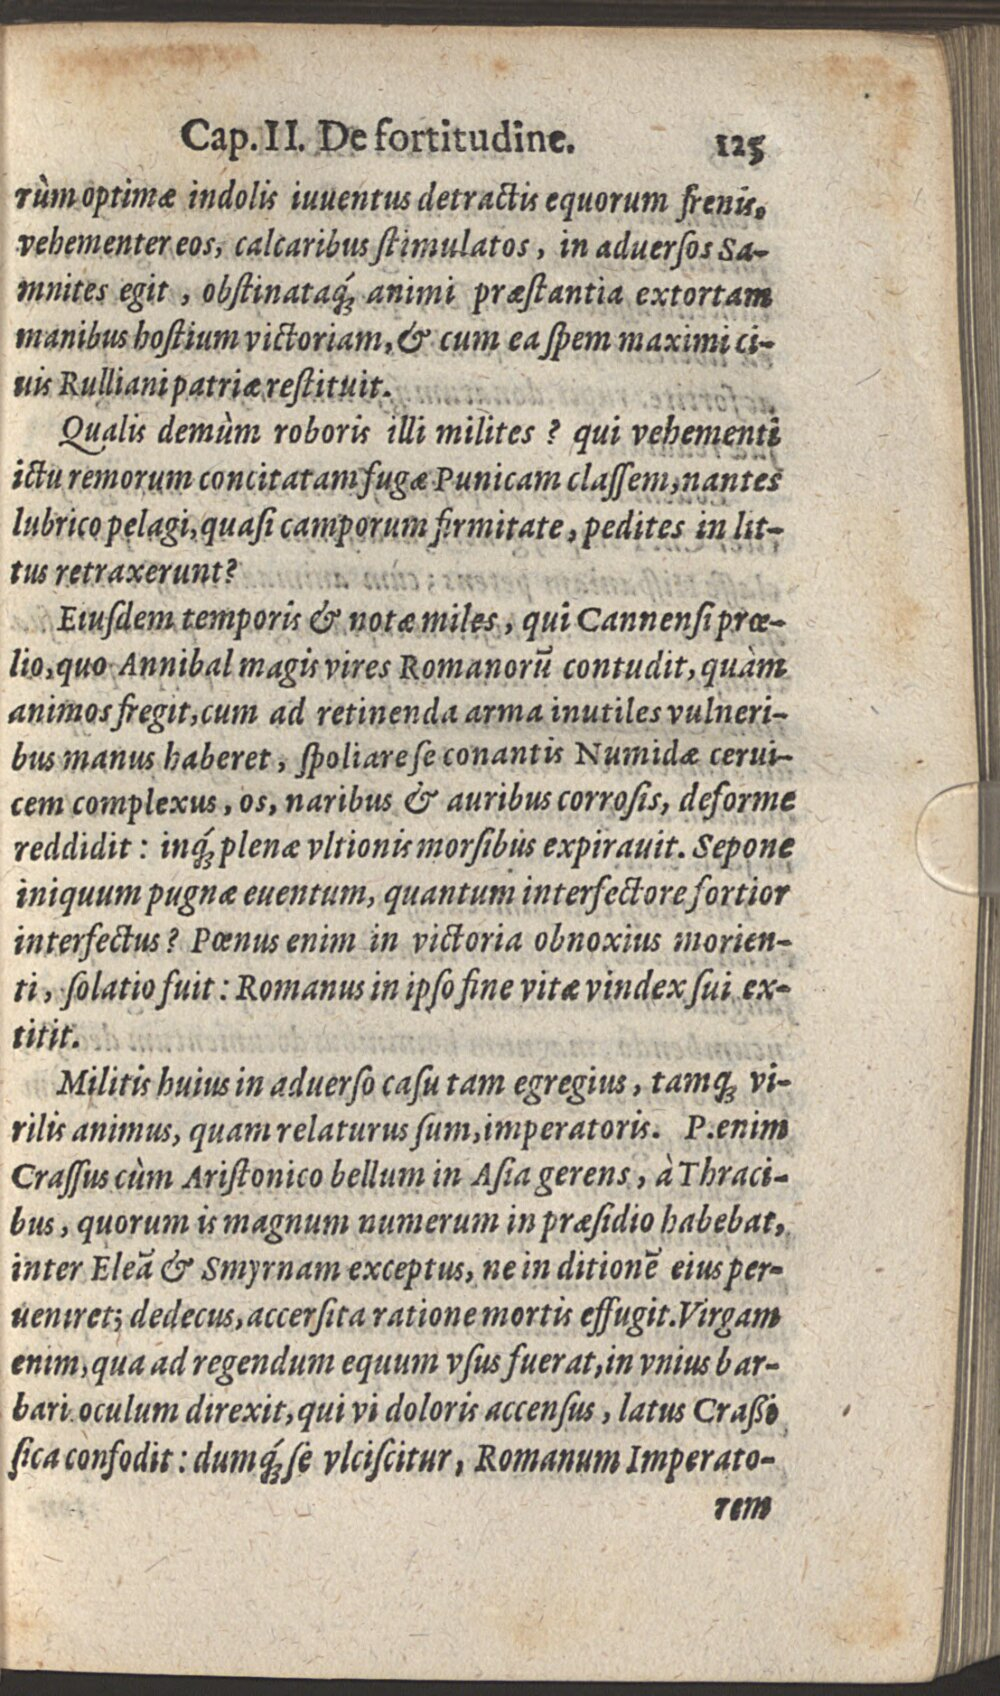 Cap. II. De fortitudine. 125
rùm optimæ indolis iuuentus detractis equorum frenis,
vehementer eos, calcaribus ſtimulatos, in aduerſos Sa-
mnites egit, obſtinataq́; animi præſtantia extortam
manibus hoſtium victoriam, & cum ea ſpem maximi ci-
uis Rulliani patriæ reſtituit.
Qualis demùm roboris illi milites? qui vehementi
ictu remorum concitatam fugæ Punicam claſſem, nantes
lubrico pelagi, quaſi camporum firmitate, pedites in lit-
tus retraxerunt?
Eiuſdem temporis & notæ miles, qui Cannenſi prœ-
lio, quo Annibal magis vires Romanorū contudit, quàm
animos fregit, cum ad retinenda arma inutiles vulneri-
bus manus haberet, ſpoliare ſe conantis Numidæ cerui-
cem complexus, os, naribus & auribus corroſis, deforme
reddidit: inq́; plenæ vltionis morſibus expirauit. Sepone
iniquum pugnæ euentum, quantum interfectore fortior
interfectus? Pœnus enim in victoria obnoxius morien-
ti, ſolatio fuit: Romanus in ipſo fine vitæ vindex ſui ex-
titit.
Militis huius in aduerſo caſu tam egregius, tamq; vi-
rilis animus, quam relaturus ſum, imperatoris. P. enim
Craſſus cùm Ariſtonico bellum in Aſia gerens, à Thraci-
bus, quorum is magnum numerum in præſidio habebat,
inter Eleā & Smyrnam exceptus, ne in ditionē eius per-
ueniret; dedecus, accerſita ratione mortis effugit. Virgam
enim, qua ad regendum equum vſus fuerat, in vnius bar-
bari oculum direxit, qui vi doloris accenſus, latus Craßi
ſica confodit: dumq́; ſe vlciſcitur, Romanum Imperato-
rem